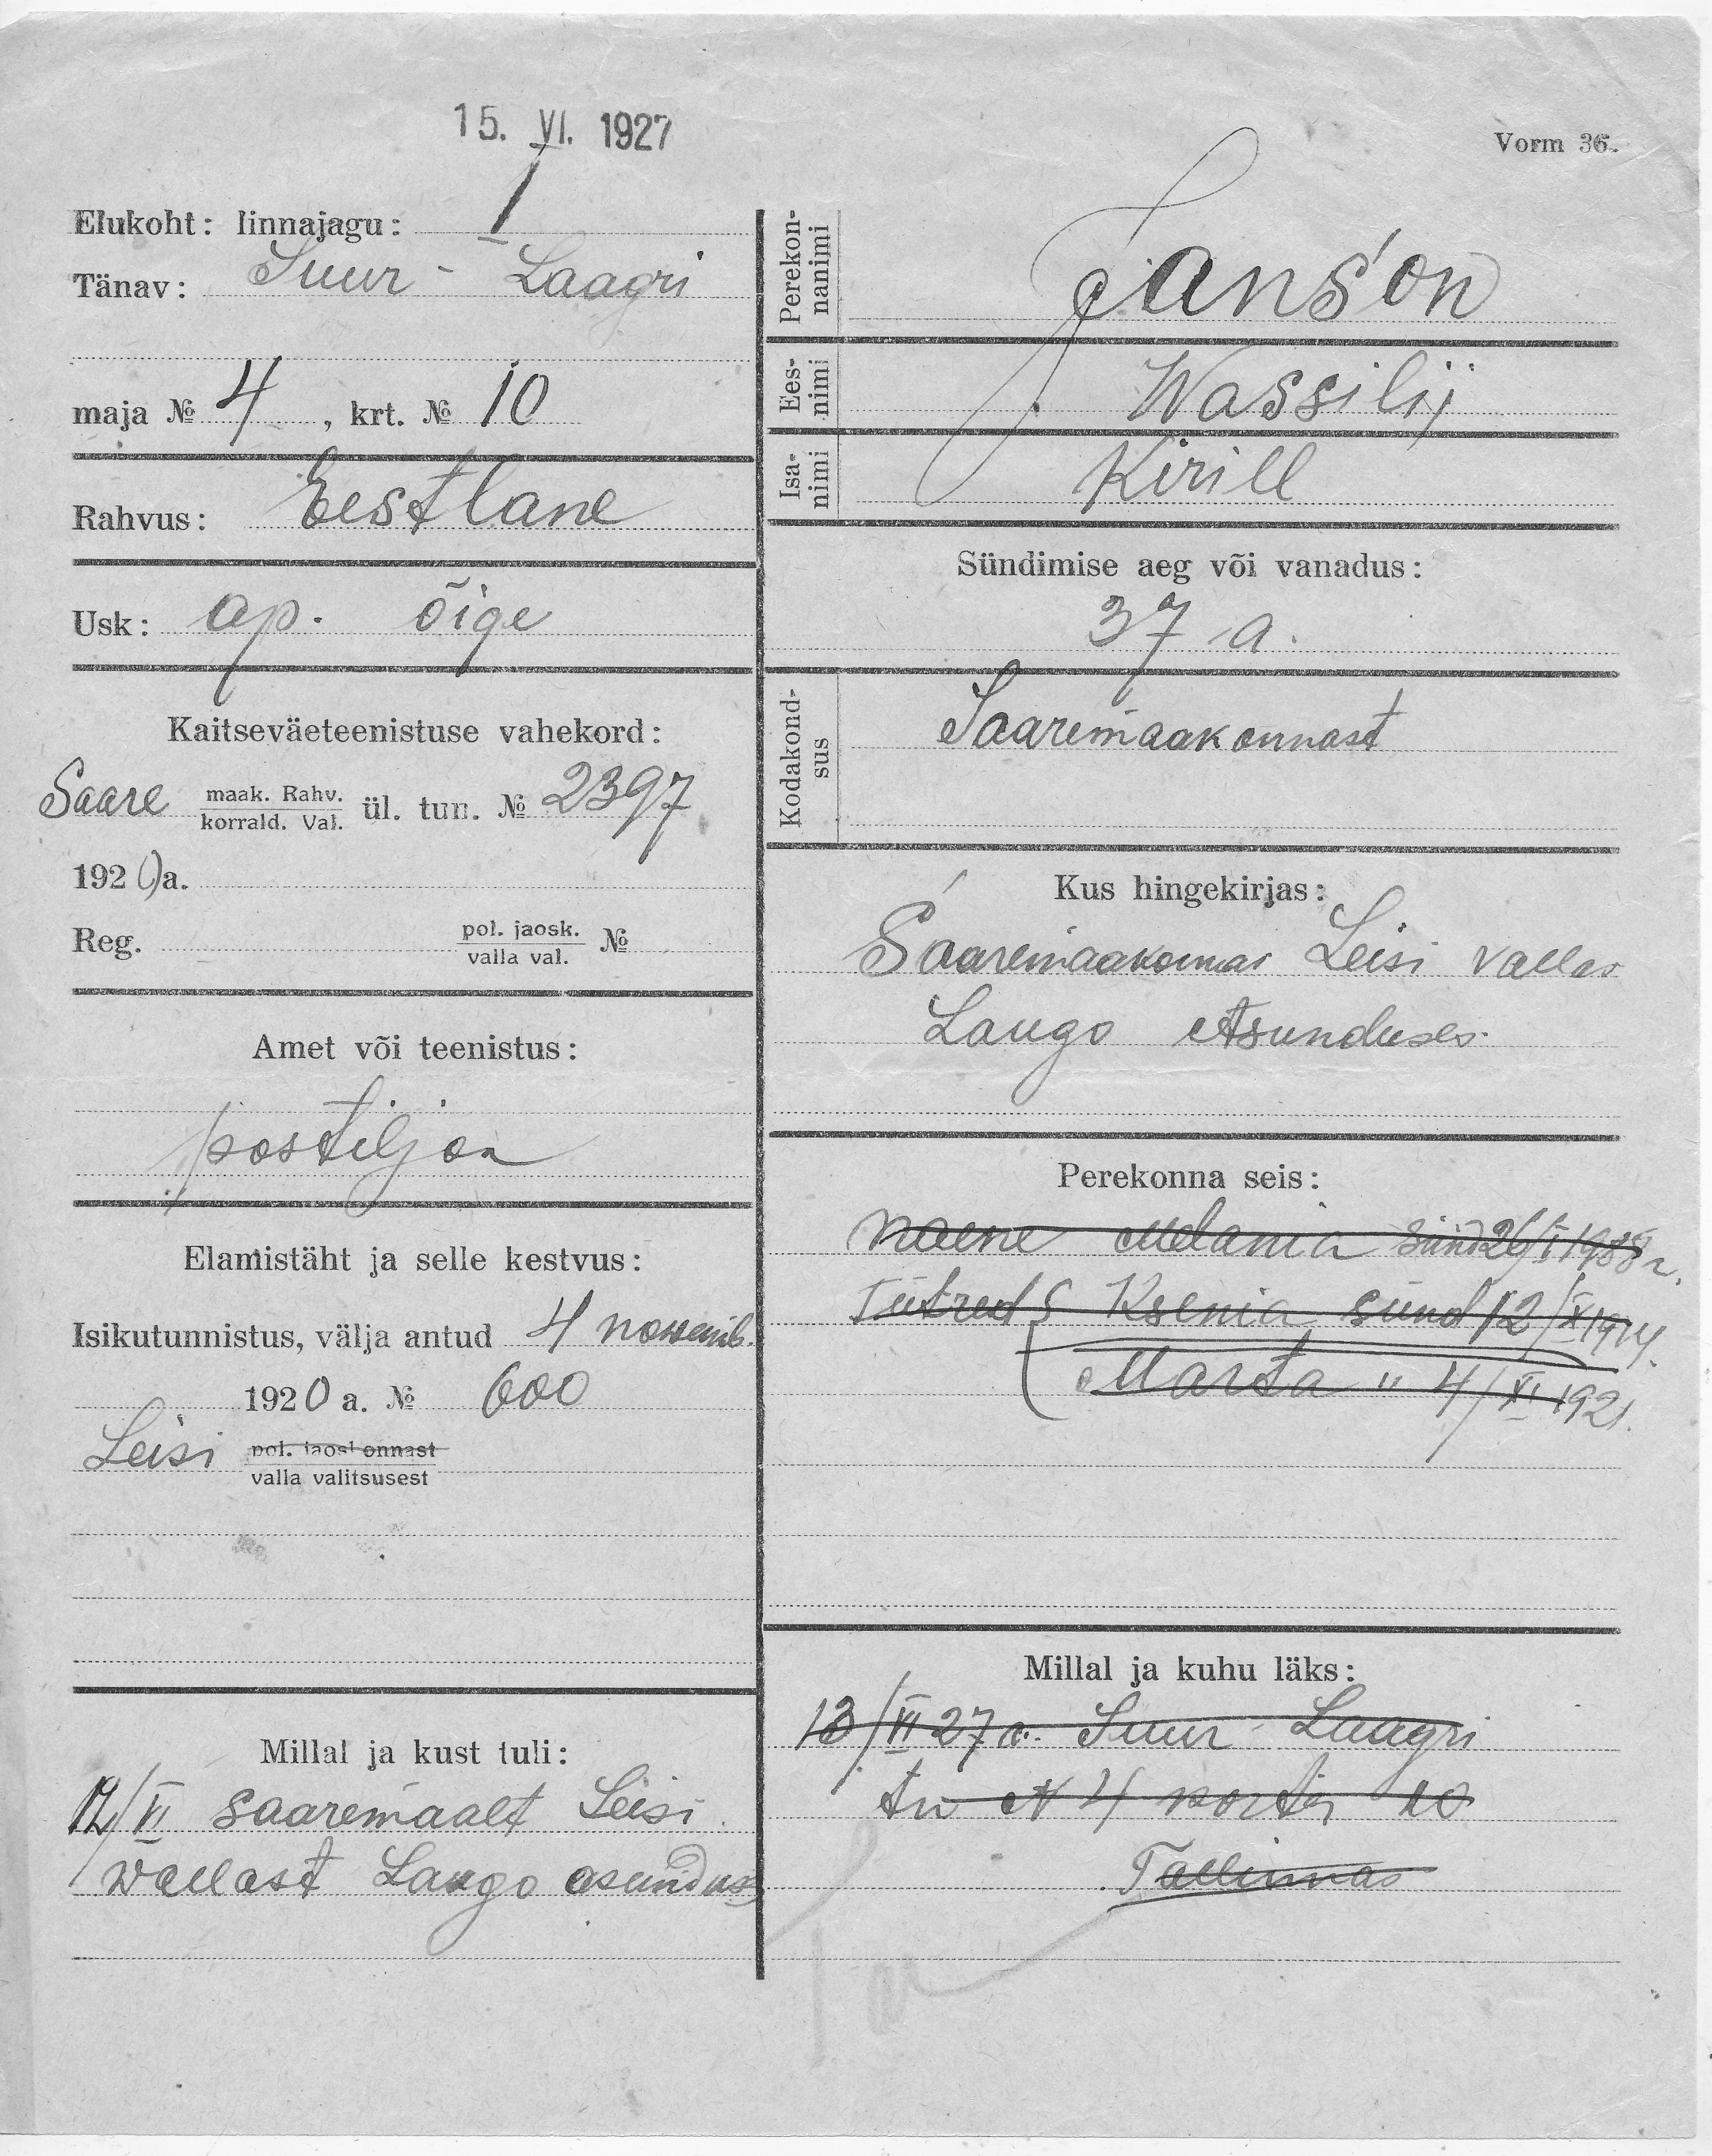 15. VI. 1927
Vorm 36.
Elukoht: linnajagu: I
Tänav: Suur - Laagri
maja № 4, krt. № 10
Rahvus: Eestlane
Usk: ap. õige
Kaitseväeteenistuse vahekord:
Saare maak. Rahv. korrald. Val. ül. tun. № 2397
1920 a.
Reg. pol. jaosk. valla val. №
Amet või teenistus:
postiljon
Elamistäht ja selle kestvus:
Isikutunnistus, välja antud 4 novemb.
1920 a. № 600
Leisi pol. jaoskonnast
valla valitsusest
Millal ja kust tuli:
12/VI saaremaalt Leisi
vallast Laugo asundus
Perekonnanimi Janson
Eesnimi Wassilij
Isanimi Kirill
Sündimise aeg või vanadus:
37 a.
Kodakondsus Saaremaakonnast
Kus hingekirjas:
Saaremaakonnas Leisi vallas
Laugo Asunduses
Perekonna seis:
naene Melania sünd 26/I
Tütred Ksenia sünd 12/X 1914.
Marta " 4/XI 1921.
Millal ja kuhu läks:
13/VI 27 a. Suur - Laagri
tn N 4 korter 10
Tallinnas